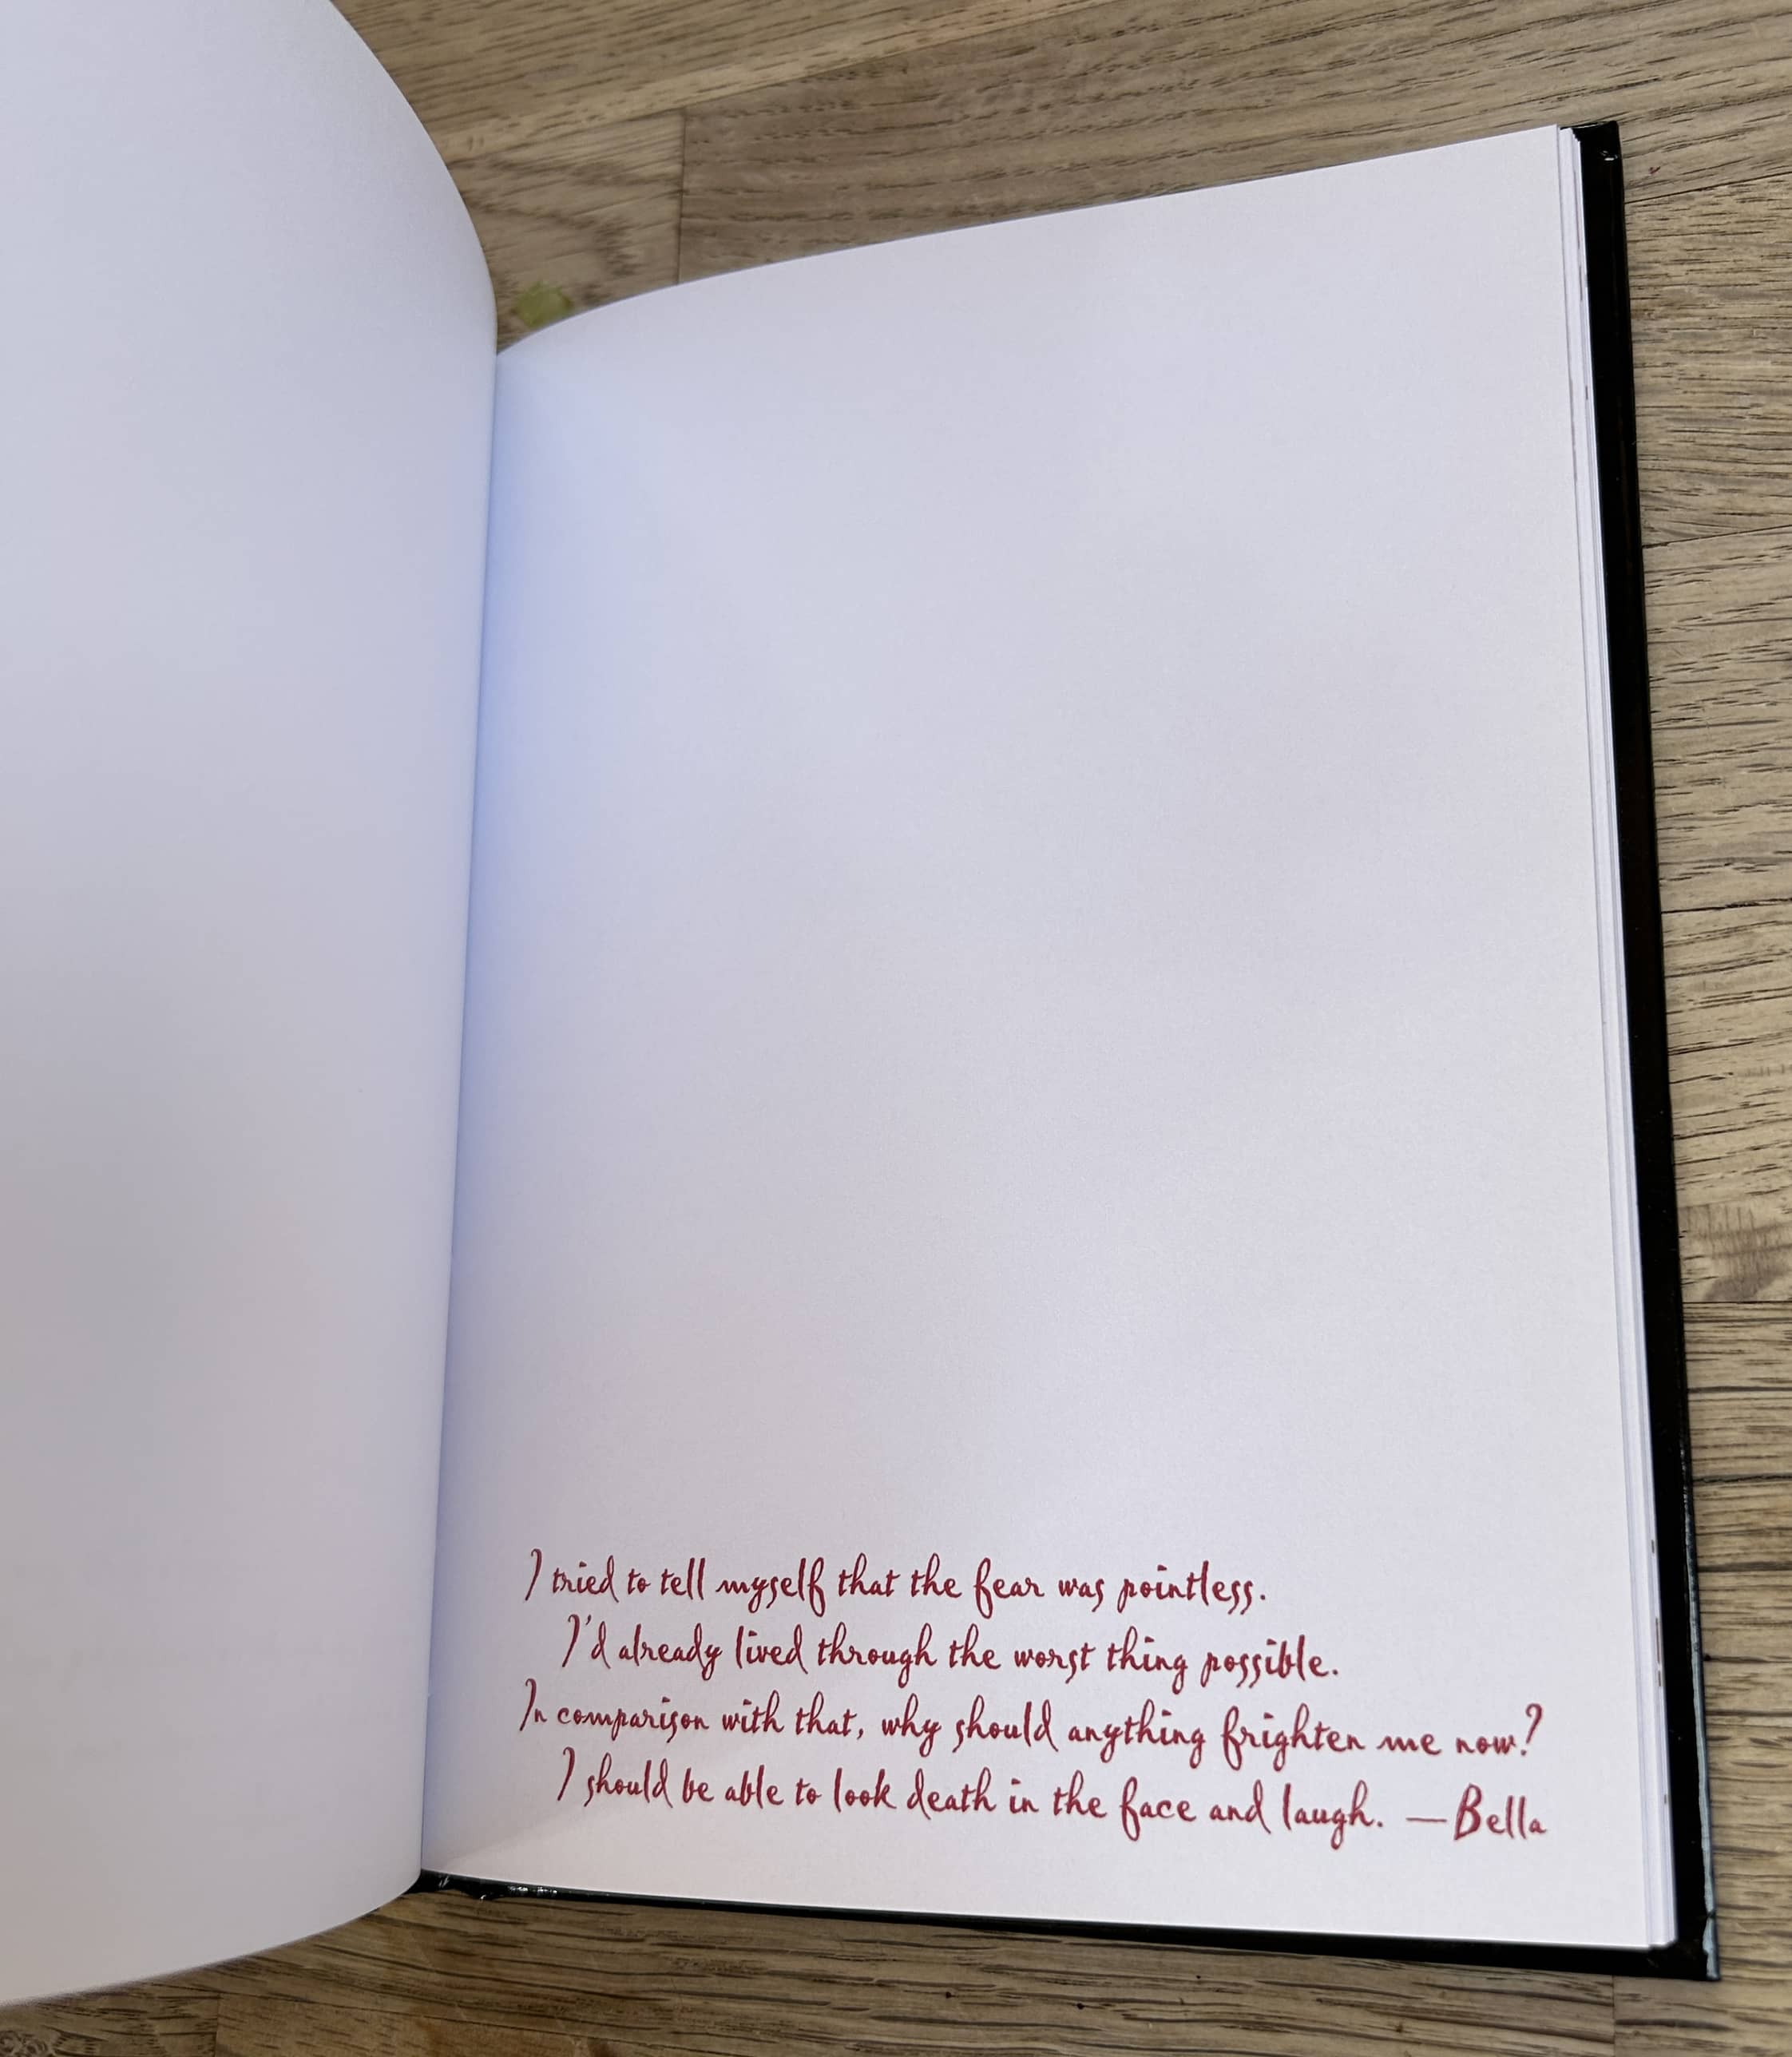 I tried to tell myself that the fear was pointless.
I'd already lived through the worst thing possible.
In comparison with that, why should anything frighten me now?
I should be able to look death in the face and laugh. —Bella